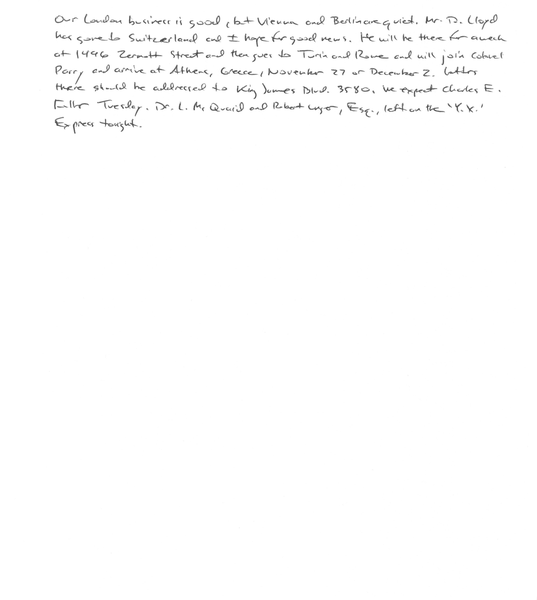 Our London business is good, but Vienna and Berlin are quiet. Mr. D. Lloyd
has gone to Switzerland and I hope for good news. He will be there for a week
at 1496 Zermott Street and then goes to Turin and Rome and will join Colonel
Parry and arrive at Athens, Greece, November 27 or December 2. Letters
there should be addressed to King James Blvd. 3580. We expect Charles E.
Fuller Tuesday. Dr. L. McQuaid and Robert Unger, Esq., left on the 'Y.X.'
Express tonight.